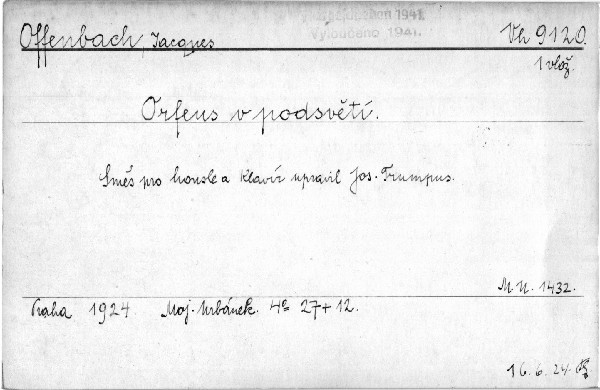 Vyloučeno 1941.
Offenbach, Jacques
Vh 9120.
1 vlož.
Orfeus v podsvětí.
Směs pro housle a klavír upravil Jos. Trumpus.
M. U. 1432.
Praha 1924. Moj. Urbánek. 4° 27+12.
16. 6. 24